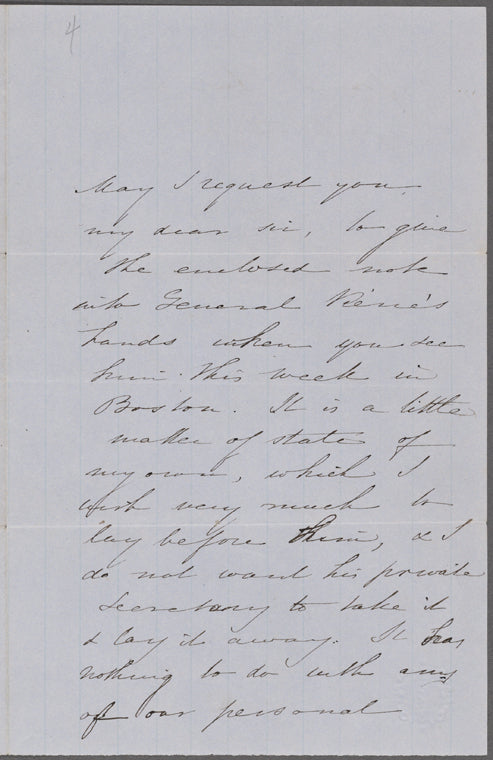 4
May I request you,
my dear sir, to give
the enclosed note
into General Pierce's
hands when you see
him this week in
Boston. It is a little
matter of state of
my own, which I
wish very much to
lay before him, & I
do not want his private
secretary to take it
& lay it away. It has
nothing to do with any
of our personal